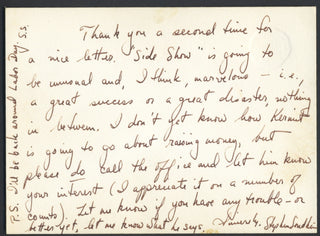 Thank you a second time for
a nice letter. "Side Show" is going to
be unusual and, I think, marvelous — i.e.,
a great success or a great disaster, nothing
in between. I don't yet know how Kermit
is going to go about raising money, but
please do call the office and let him know
your interest (I appreciate it on a number of
counts). Let me know if you have any trouble – or
better yet, let me know what he says.
Sincerely, Stephen Sondheim
P.S. I'll be back around Labor Day. S.S.